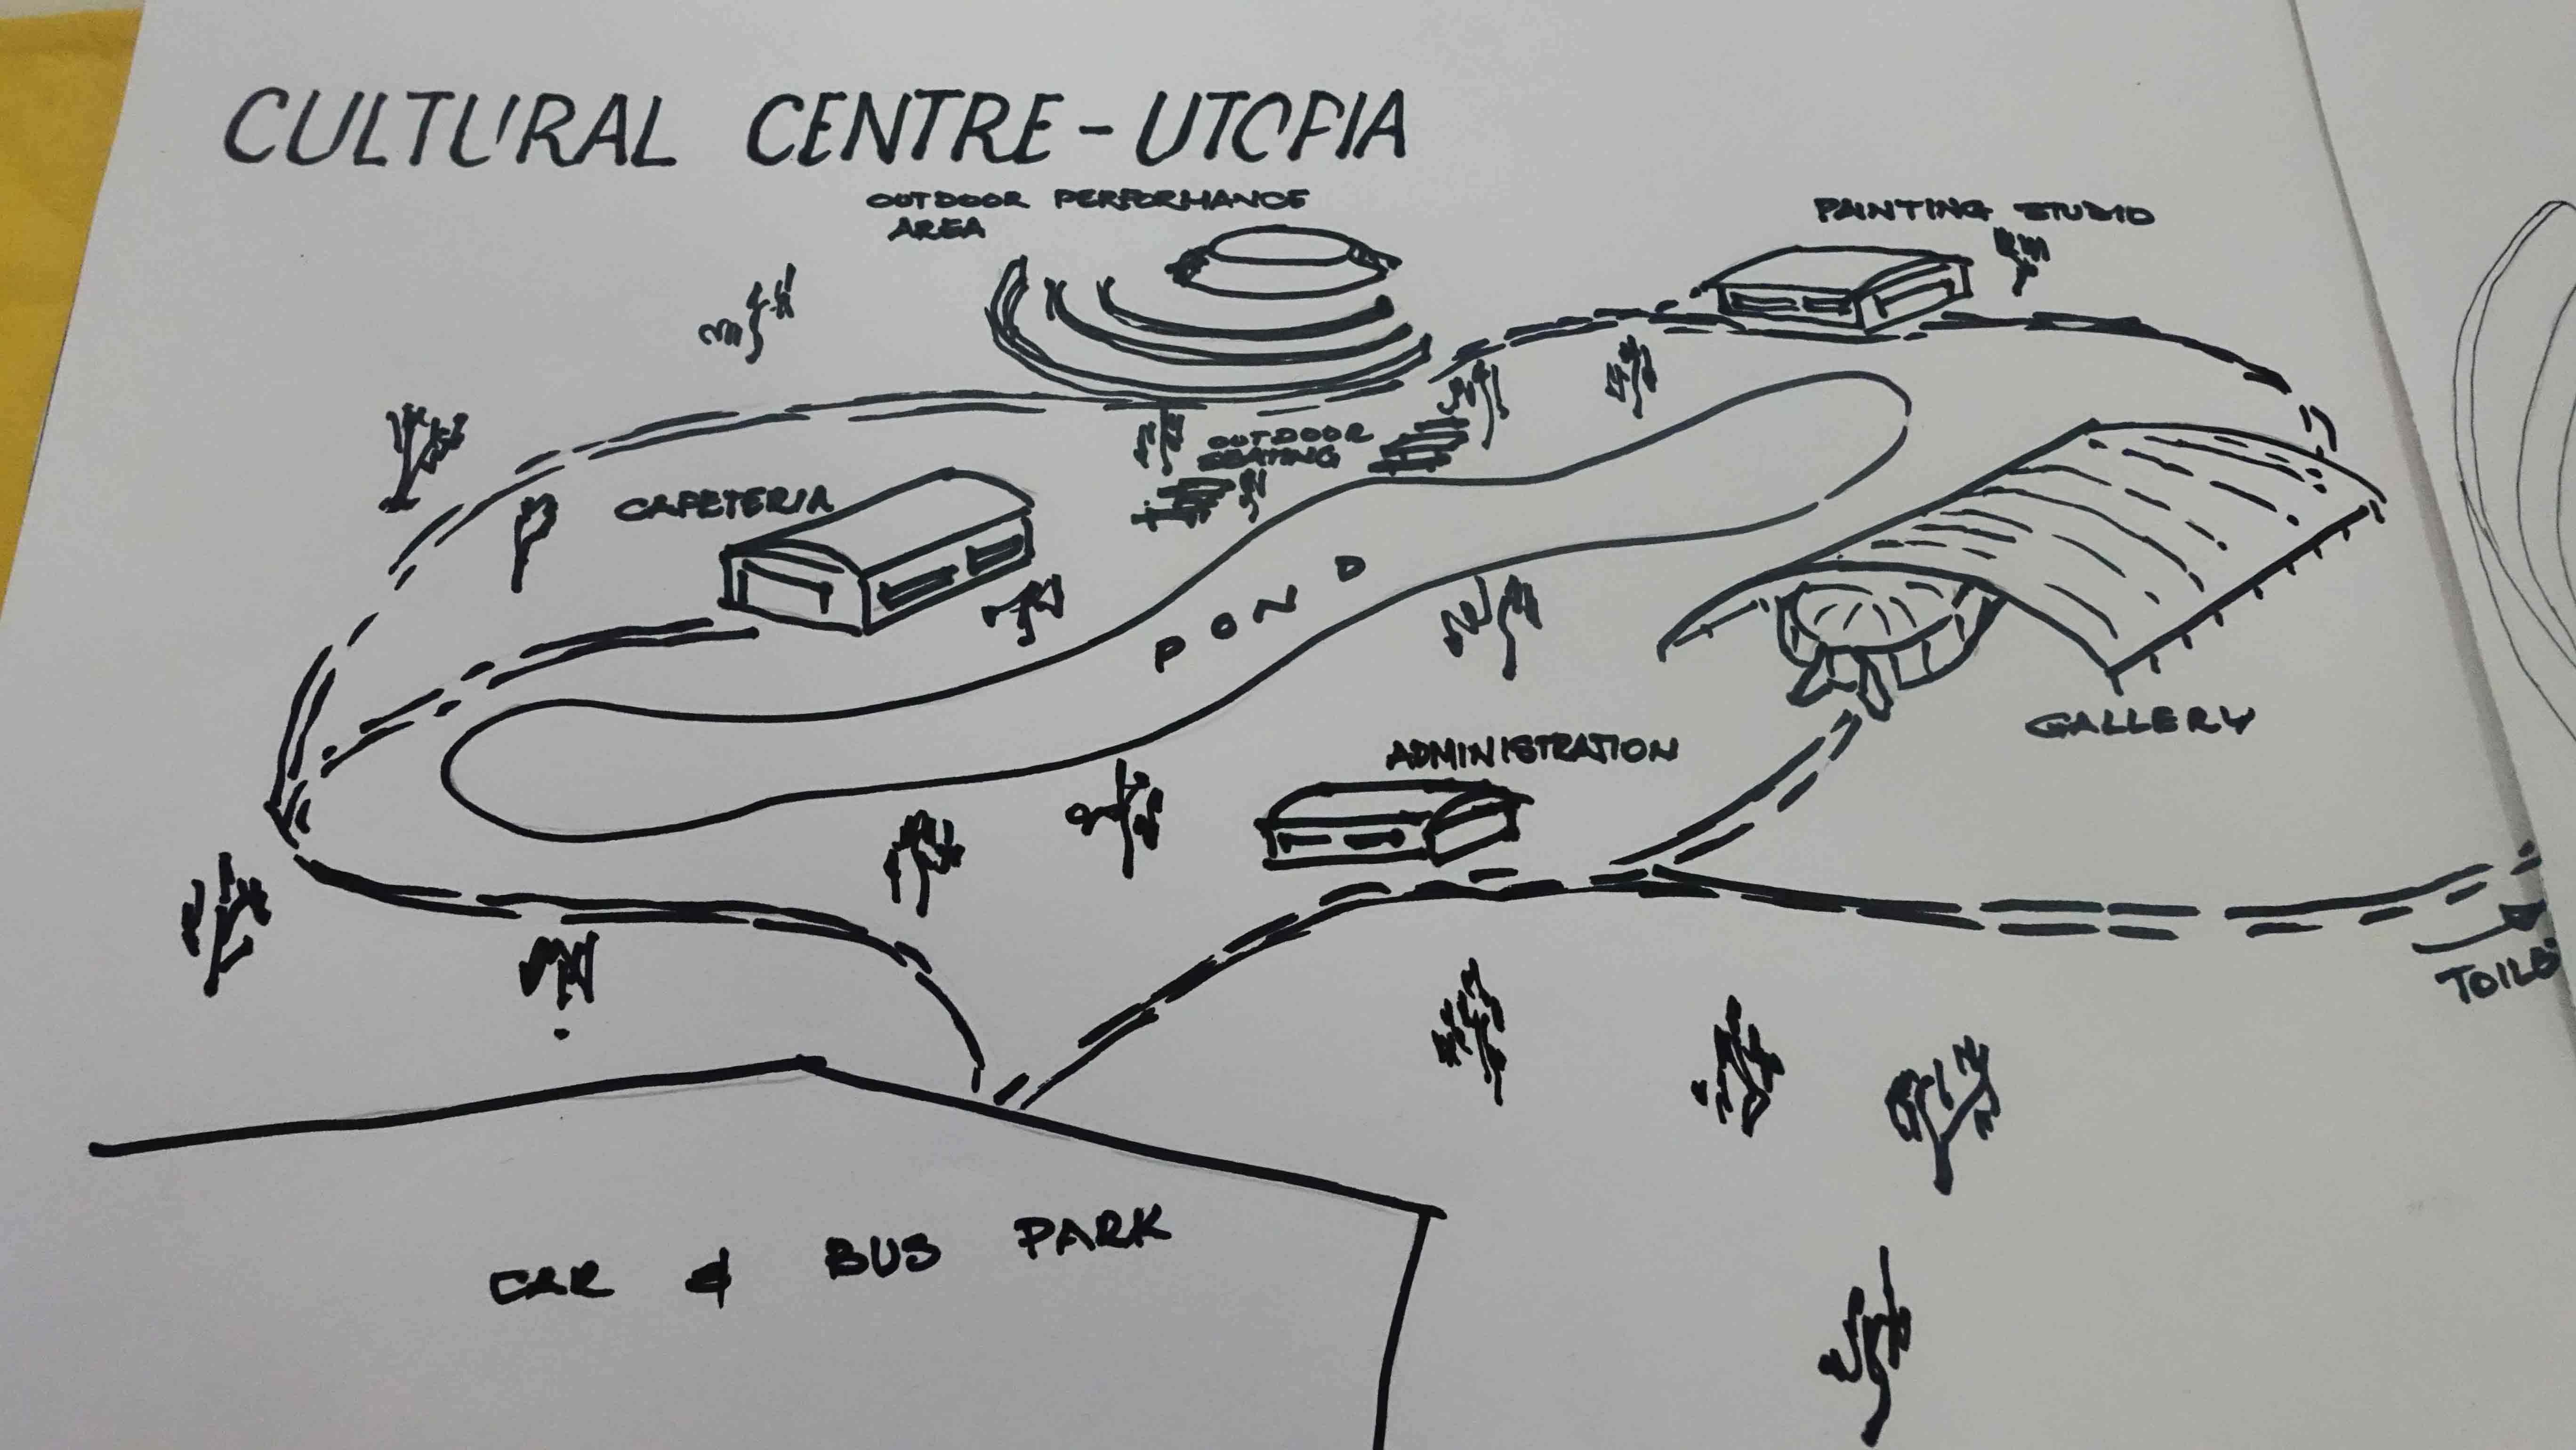 CULTURAL CENTRE - UTOPIA
OUTDOOR PERFORMANCE
AREA
PAINTING STUDIO
OUTDOOR
SEATING
CAFETERIA
POND
GALLERY
ADMINISTRATION
TOILE
CAR & BUS PARK